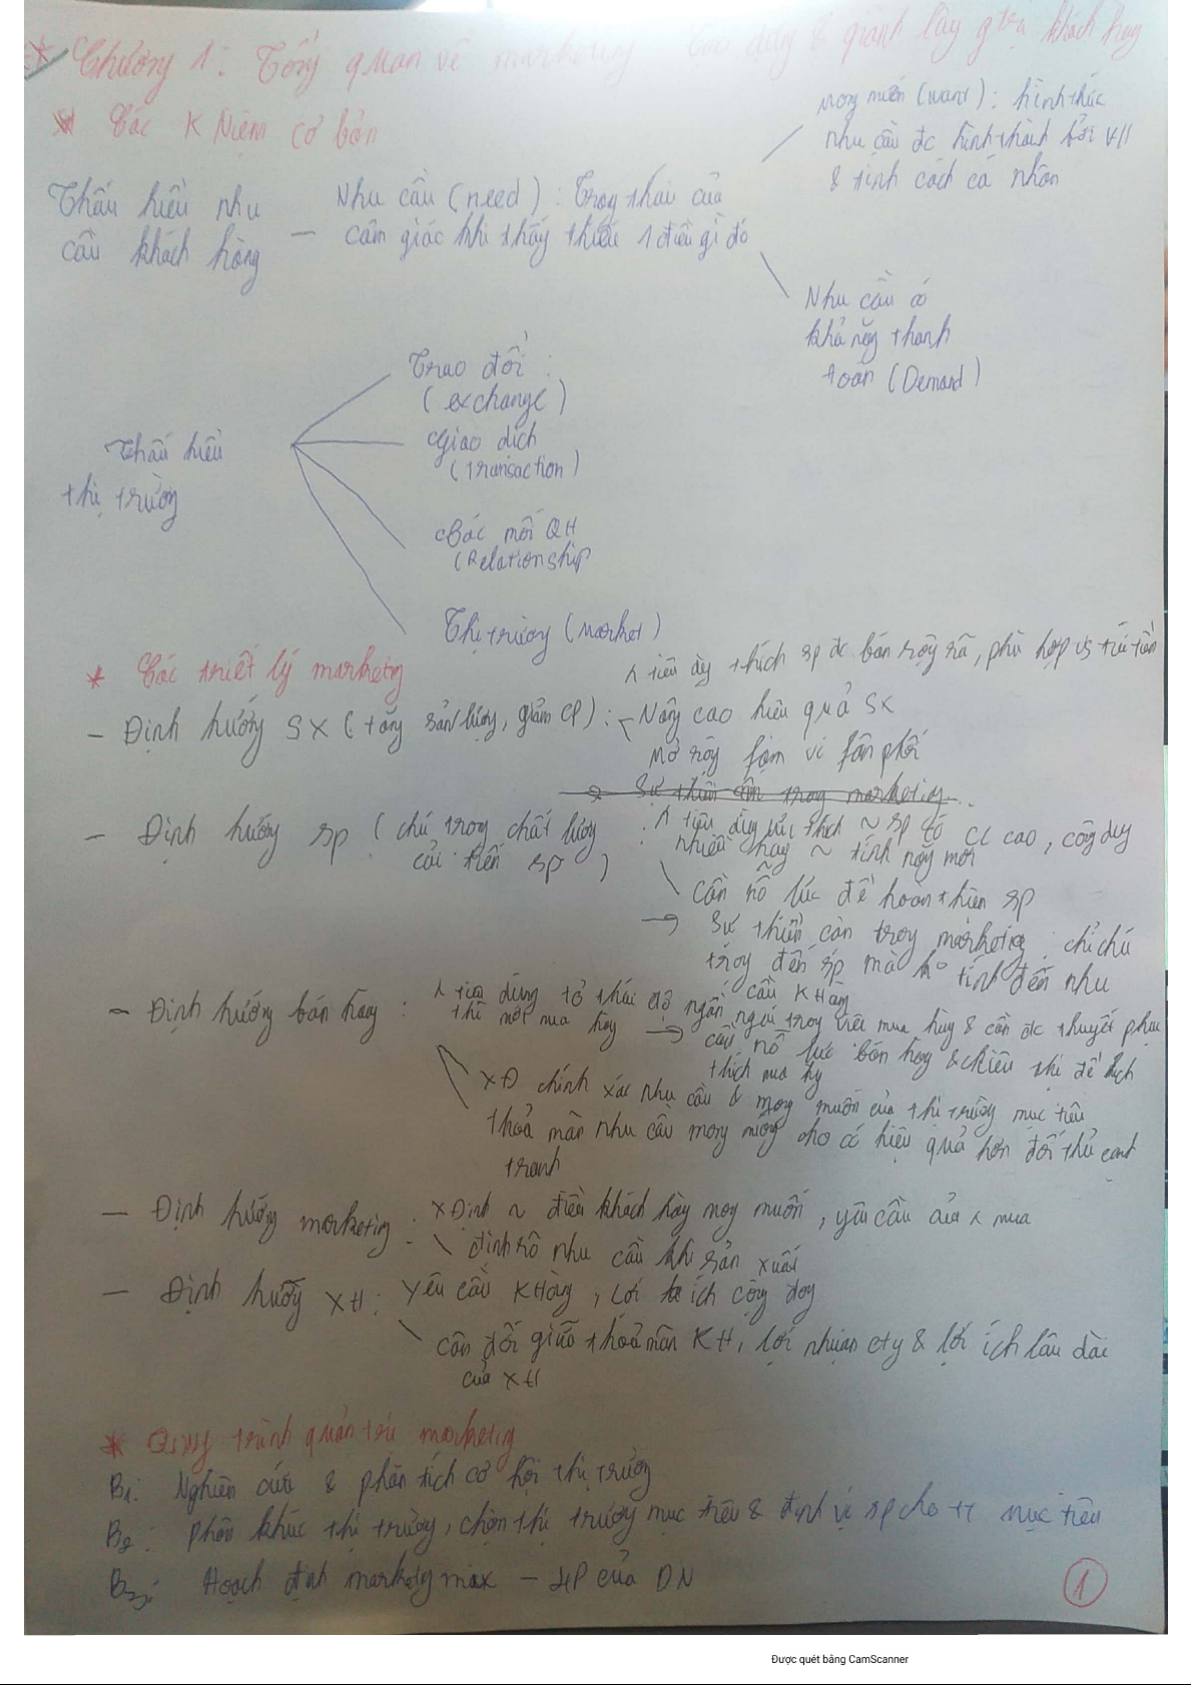 * Chương 1: Tổng quan về marketing tạo dựng & giành lấy gtrị khách hàng
* Các K Niệm cơ bản
Thấu hiểu nhu
cầu khách hàng
Nhu cầu (need): Trạng thái của
cảm giác khi thấy thiếu 1 điều gì đó
Mong muốn (want): hình thức
nhu cầu đc hình thành bởi VH
& tính cách cá nhân
Nhu cầu có
khả năng thanh
toán (Demand)
Thấu hiểu
thị trường
Trao đổi:
(exchange)
Giao dịch
(Transaction)
Các mối QH
(Relationship
Thị trường (Market)
* Các triết lý marketing
tiêu dg thích sp đc bán rộng rãi, phù hợp vs túi tiền
- Định hướng SX (tăng sản lượng, giảm CP): - Nâng cao hiệu quả SX
Mở rộng fạm vi fân phối
- Định hướng sp (chú trọng chất lượng
cải tiến sp)
: tiêu dùng thích ~ sp có CL cao, công dụng
nhiều hay ~ tính năng mới
Cần nỗ lực để hoàn thiện sp
→ Sự thiển cận trong marketing: chỉ chú
trọng đến sp mà ko tính đến nhu
cầu KHàng
- Định hướng bán hàng: tiêu dùng tỏ thái độ ngần ngại trong việc mua hàng & cần đc thuyết phục
thì mới mua hàng → cần nỗ lực bán hàng & chiêu thị để kích
thích mua hg
XĐ chính xác nhu cầu & mong muốn của thị trường mục tiêu
thoả mãn nhu cầu mong muốn cho có hiệu quả hơn đối thủ cạnh
tranh
- Định hướng marketing: XĐịnh ~ điều khách hàng mong muốn, yêu cầu của mua
định rõ nhu cầu khi sản xuất
- Định hướng XH: Yêu cầu KHàng, lợi ích cộng đồng
cân đối giữa thoả mãn KH, lợi nhuận cty & lợi ích lâu dài
của XH
* Quy trình quản trị marketing
B1: Nghiên cứu & phân tích cơ hội thị trường
B2: Phân khúc thị trường, chọn thị trường mục tiêu & định vị sp cho TT mục tiêu
B3: Hoạch định marketing mix - 4P của DN
1
Được quét bằng CamScanner